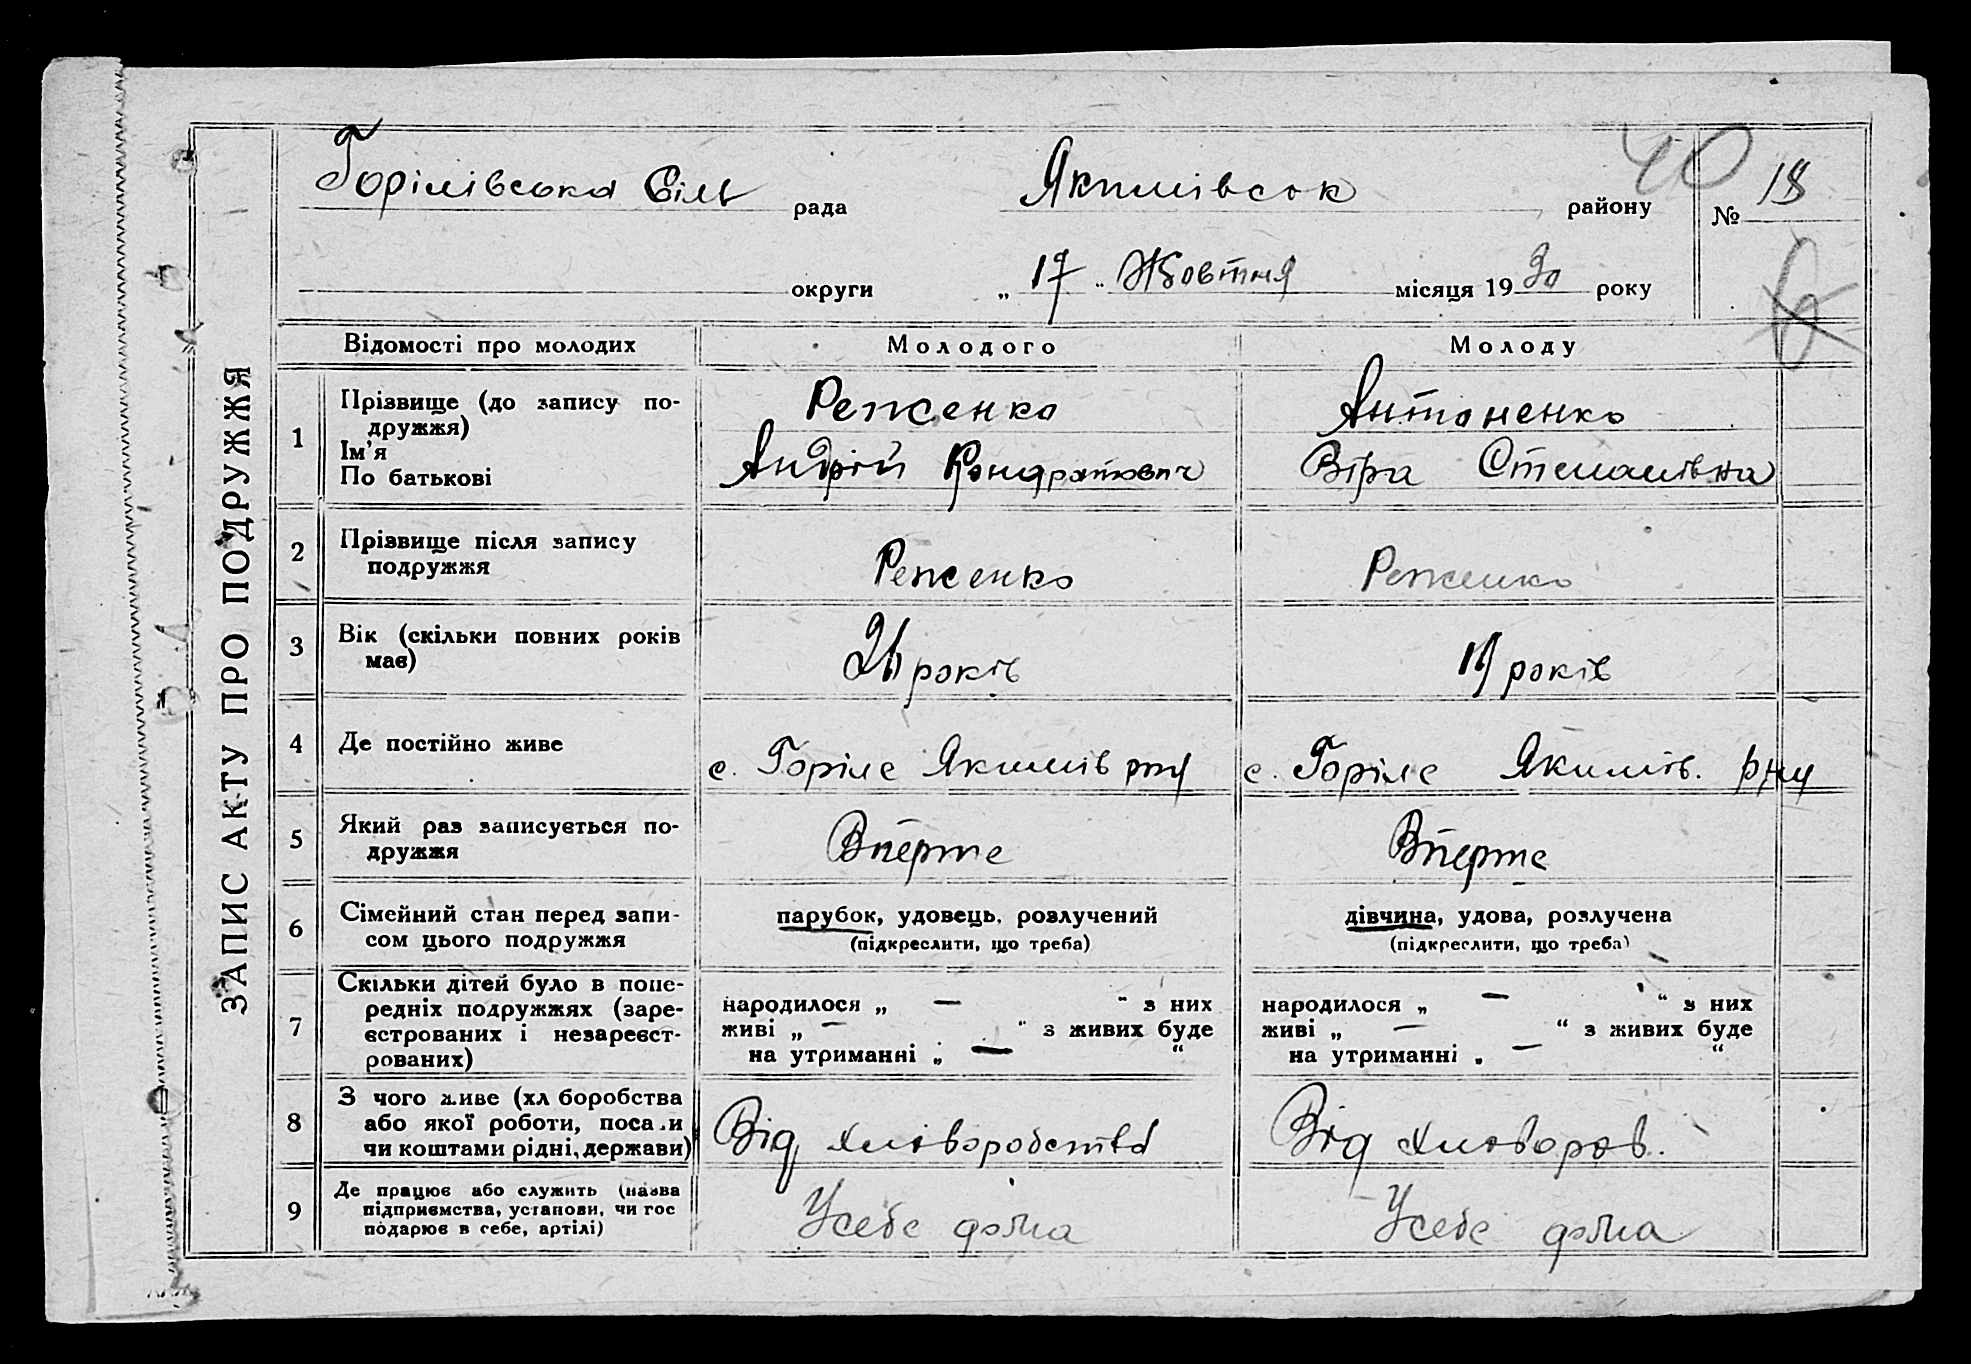 40
Горілівська Сіль рада Якимівськ району № 18
округи „ 17 “ Жовтня місяця 1930 року
ЗАПИС АКТУ ПРО ПОДРУЖЖЯ
Відомості про молодих Молодого Молоду
1 Прізвище (до запису по-
дружжя)
Ім'я
По батькові
Репженко
Андрій Кондратович
Антоненко
Віра Степанівна
2 Прізвище після запису
подружжя
Репженко
Репженко
3 Вік (скільки повних років
має)
26 років
19 років
4 Де постійно живе
с. Горіле Якимів рну
с. Горіле Якимів. рну
5 Який раз записується по-
дружжя
Вперше
Вперше
6 Сімейний стан перед запи-
сом цього подружжя
парубок, удовець, розлучений
(підкреслити, що треба)
дівчина, удова, розлучена
(підкреслити, що треба)
7 Скільки дітей було в попе-
редніх подружжях (заре-
єстрованих і незареєст-
рованих)
народилося „ — “ з них
живі „ — “ з живих буде
на утриманні „ — “
народилося „ — “ з них
живі „ — “ з живих буде
на утриманні „ — “
8 З чого живе (хл боробства
або якої роботи, поса и
чи коштами рідні, держави)
Від хліборобства
Від хлібороб.
9 Де працює або служить (назва
підприємства, установи, чи гос
подарює в себе, артілі)
Усебе дома
Усебе дома